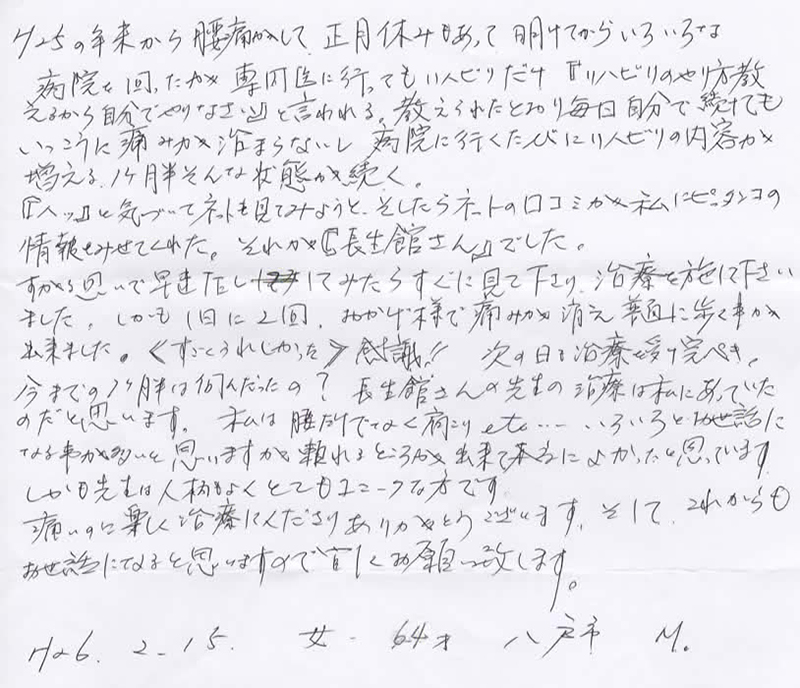 H25の年末から腰痛がして、正月休みもあって明けてからいろいろな
病院を回ったが専門医に行ってもリハビリだけ『リハビリのやり方教
えるから自分でやりなさい』と言われる。教えられたとおり毎日自分で続けても
いっこうに痛みが治まらないし病院に行くたびにリハビリの内容が
増える、1ヶ月半そんな状態が続く。
『ハッ』と気づいてネットを見てみようと、そしたらネットの口コミが私にピッタンコの
情報をみせてくれた。それが『長生館さん』でした。
すがる思いで早速TELしてみたらすぐに見て下さり、治療を施して下さい
ました。しかも1日に2回、おかげ様で痛みが消え普通に歩く事が
出来ました。≪すごくうれしかった≫感謝!! 次の日も治療を受け完ぺき。
今までの1ヶ月半は何んだったの? 長生館さんの先生の治療は私にあっていた
のだと思います。私は腰だけでなく肩こりetc……いろいろとお世話に
なる事が多いと思いますが頼れるところが出来て本当によかったと思っています。
しかも先生は人柄もよくとてもユニークな方です。
痛いのに楽しく治療してくださりありがとうございます。そして、これからも
お世話になると思いますので宜しくお願い致します。
H26. 2-15. 女- 64才 八戸市 M.